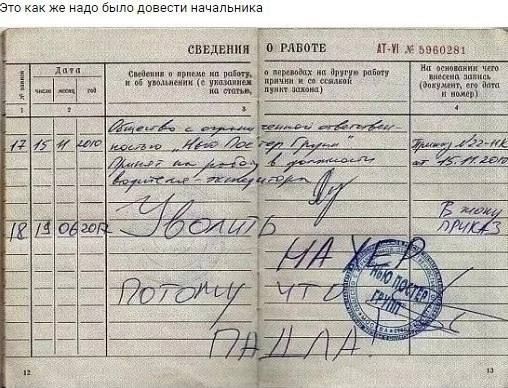 Это как же надо было довести начальника
СВЕДЕНИЯ О РАБОТЕ АТ-VI № 5960281
№ записи
Дата
число месяц год
Сведения о приеме на работу, о переводах на другую работу
и об увольнении (с указанием причин и со ссылкой
на статью, пункт закона)
На основании чего
внесена запись
(документ, его дата
и номер)
1 2 3 4
Общество с ограниченной ответствен-
17 15 11 2010 ностью "Нью Постер Групп" Приказ №22-НК
Принят на работу в должности от 15.11.2010
водителя-экспедитора
18 19 06 2012 Уволить В жопу
ПРИКАЗ
НА ХЕР
ПОТОМУ ЧТО
ПАДЛА!
НЬЮ ПОСТЕР
ГРУПП
МОСКВА
12 13